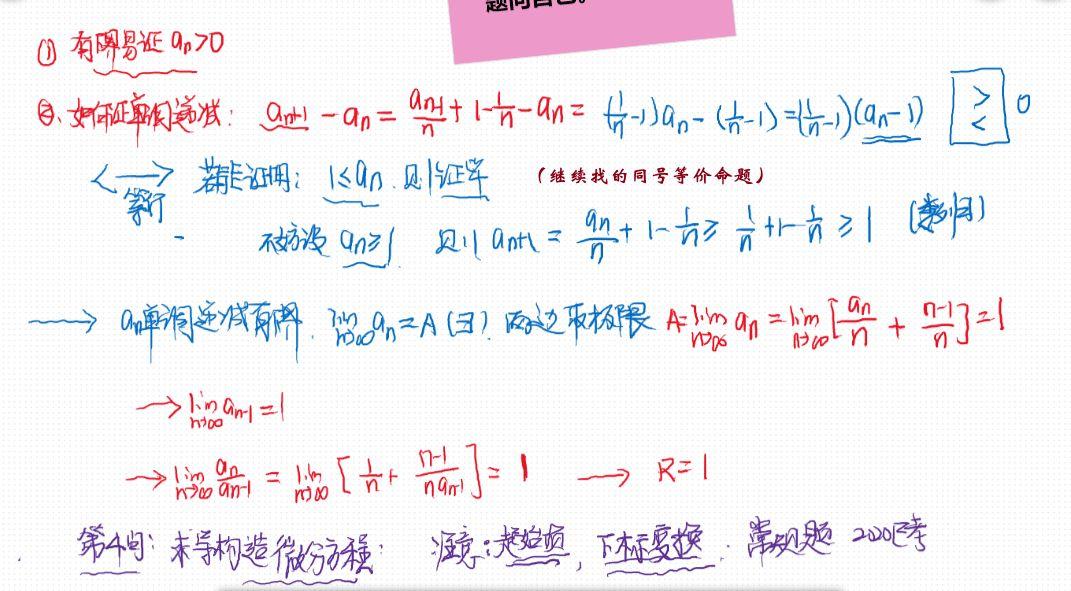 题问自己。
① 有界易证 aₙ>0
②. 如何证单调递减: aₙ₊₁ - aₙ = aₙ₋₁/n + 1-1/n - aₙ = (1/n-1)aₙ - (1/n-1) = (1/n-1)(aₙ-1) > < 0
<—> 等价 若能证明: 1≤aₙ 则证毕 (继续找的同号等价命题)
- 不妨设 aₙ≥1 则 aₙ₊₁ = aₙ/n + 1-1/n ≥ 1/n+1-1/n ≥ 1
→ aₙ单调递减有界. lim n→∞ aₙ=A(∃)? 两边取极限 A=lim n→∞ aₙ = lim n→∞ [aₙ/n + n-1/n]=1
→ lim n→∞ aₙ₋₁=1
→ lim n→∞ aₙ/aₙ₋₁ = lim n→∞ [1/n + n-1/naₙ₋₁] = 1 → R=1
第4问: 求导构造微分方程: 注意: 起始项, 下标变换. 常规题 2020已考